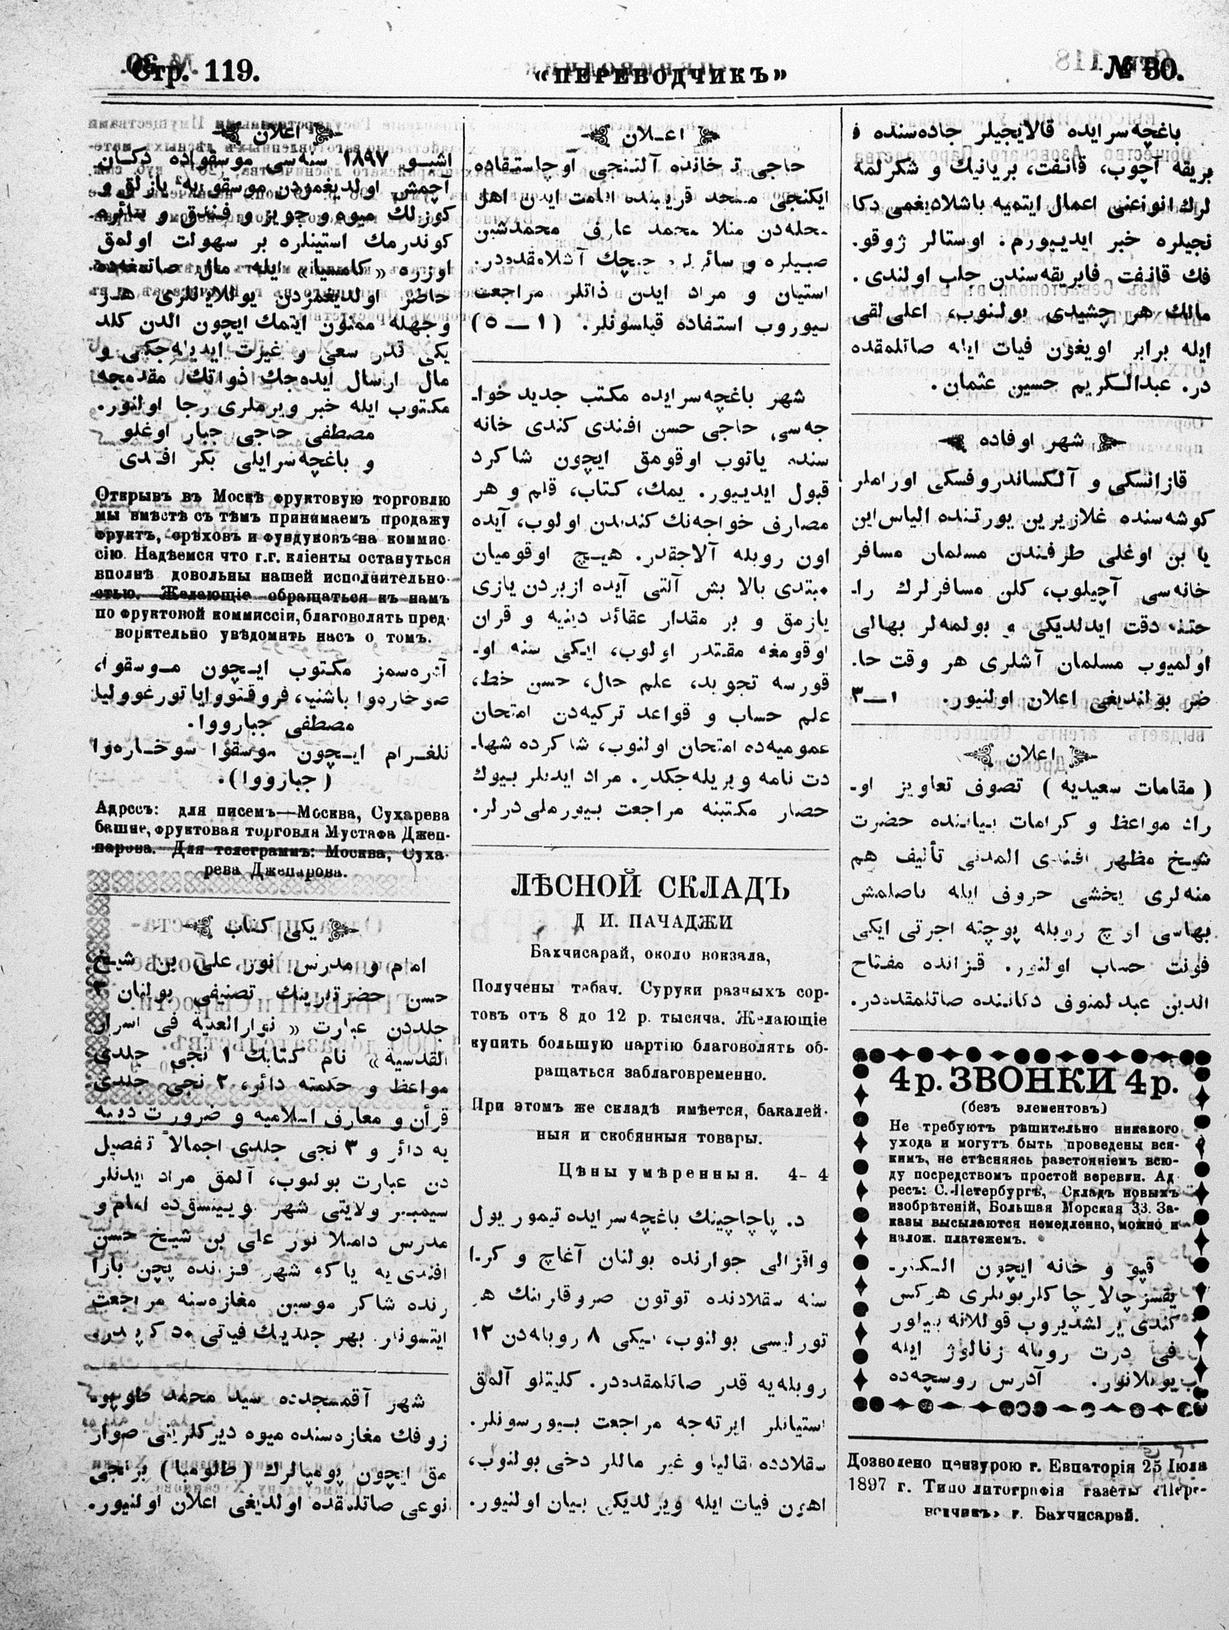 Стр. 119.
«ПЕРЕВОДЧИКЪ»
№ 30.
باغچه‌سرایده قالایجیلر جاده‌سنده
بریقه آچوب، قانفت، بریانیك و شکرلمه
لرك انواعنی اعمال ایتمیه باشلادیغمی دکا
نجیلره خبر ایدییورم. اوستالر ژوقو.
فك قانفت، فابریقه‌سندن جلب اولندی.
مالك هر چشیدی بولنوب، اعلی‌لقی
ایله برابر اویغون فیات ایله صاتلمقده
در. عبدالکریم حسین عثمان.
شهر اوفاده
قازانسکی و آلکساندروفسکی اوراملر
کوشه‌سنده غلازیرین یورتنده الیاس‌ابن
یا بن اوغلی طرفندن مسلمان مسافر
خانه‌سی آچیلوب، کلن مسافرلرك را-
حتنه دقت ایدلدیکی و بولمه‌لر بهالی
اولمیوب مسلمان آشلری هر وقت حا.
ضر بولندیغی اعلان اولنیور. ١—٣
اعلان
(مقامات سعیدیه) تصوف تعاویز او-
راد مواعظ و کرامات بیاننده حضرت
شیخ مظهر افندی المدنی تألیف هم
منه‌لری یخشی حروف ایله باصلمش
بهاسی اوچ روبله پوچته اجرتی ایکی
فونت حساب اولنور. قزانده مفتاح
الدین عبدلمنوف دکاننده صاتلمقده‌در.
4 р. ЗВОНКИ 4 р.
(безъ элементовъ)
Не требуютъ рѣшительно никакого
ухода и могутъ быть проведены вся-
кимъ, не стѣсняясь разстояніемъ всю-
ду посредствомъ простой веревки. Ад
ресъ: С.-Петербургъ, Складъ новыхъ
изобрѣтеній, Большая Морская 33. За-
казы высылаются немедленно, можно и
налож. платежемъ.
قپو و خانه ایچون
هرکس
کندی یرلشدیروب قوللانه بیلور
فی درت روبله زنالوژ ایله
یوللانور. آدرس روسچه‌ده
Дозволено цензурою г. Евпаторія 25 Іюля
1897 г. Типо литографія газеты «Пере-
водчикъ» г. Бахчисарай.
اعلان
حاجی خاننده آلتنجی اوچاستقاده
ایکنجی مسجد قربنده اقامت ایدن اهل
محله‌دن منلا محمد عارف محمدشین
صبیلره و سائر چیچك آشلامقده‌در.
استیان و مراد ایدن ذاتلر مراجعت
بیوروب استفاده قیلسونلر. (١—٥)
شهر باغچه‌سرایده مکتب جدید خوا-
جه‌سی حاجی حسن افندی کندی خانه
سنده یاتوب اوقومق ایچون شاکرد
قبول ایدییور. یمك، کتاب، قلم و هر
مصارف خواجه‌نك کندیدن اولوب، آیده
اون روبله آلاجقدر. هیچ اوقومیان
مبتدی بالا بش آلتی آیده ازبردن یازی
یازمق و بر مقدار عقائد دینیه و قران
اوقومغه مقتدر اولوب، ایکی سنه او-
قورسه تجوید، علم حال، حسن خط،
علم حساب و قواعد ترکیه‌دن امتحان
عمومیه‌ده امتحان اولنوب، شاکرده شها-
دت نامه ویریله‌جکدر. مراد ایدنلر بیوك
حصار مکتبنه مراجعت بیورملی‌درلر.
ЛѢСНОЙ СКЛАДЪ
Д И. ПАЧАДЖИ
Бахчисарай, около вокзала,
Получены табач. Суруки разныхъ сор-
товъ отъ 8 до 12 р. тысяча. Желающіе
купить большую партію благоволять об-
ращаться заблаговременно.
При этомъ же складѣ имѣется, бакалей-
ныя и скобянныя товары.
Цѣны умѣренныя. 4- 4
د. پاچاجینك باغچه‌سرایده تیمور یول
واقزالی جوارنده بولنان آغاچ و کرا
سنه سقلادنده توتون صروقلرینك هر
تورلیسی بولنوب، بیکی ٨ روبله‌دن ١٢
روبله‌یه قدر صاتلمقده‌در. کلیتلو آلمق
استیانلر ایرته‌جه مراجعت بیورسونلر.
سقلادده بقالیا و غیر ماللر دخی بولنوب،
اهون فیات ایله ویرلدیکی بیان اولنیور.
اعلان
اشبو ١٨٩٧ سنه‌سی موسقواده دکان
آچمش اولدیغمزدن موسقویه یازلق و
کوزلك میوه و جویز و فندق و سائره
کوندرمك استینلره بر سهولت اولمق
اوزره «کامسیا» ایله مال صاتمغه‌ده
حاضر اولدیغمزدن یوللایانلری هر
وجهله ممنون ایتمك ایچون الدن کلد
یکی قدر سعی و غیرت ایدیله‌جکی و
مال ارسال ایده‌جك ذواتك مقدمجه
مکتوب ایله خبر ویرملری رجا اولنور.
مصطفی حاجی جبار اوغلو
و باغچه‌سرایلی بکر افندی
Открывъ въ Москвѣ фруктовую торговлю
мы вмѣстѣ съ тѣмъ принимаемъ продажу
фруктъ, орѣховъ и фундуковъ на коммис-
сію. Надѣемся что г.г. кліенты остануться
вполнѣ довольны нашей исполнительно-
стью. Желающіе обращаться къ намъ
по фруктовой коммиссіи, благоволять пред-
ворительно увѣдомить насъ о томъ.
آدره‌سمز مکتوب ایچون موسقوا،
صوخاره‌وا باشنیا، فروقتووایا تورغوولیا
مصطفی جبارووا.
تلغرام ایچون موسقوا سوخاره‌وا
(جبارووا).
Адресъ: для писемъ—Москва, Сухарева
башне, фруктовая торговля Мустафа Джеп-
парова. Для телеграммъ: Москва, Суха-
рева Джепарова.
یکی کتاب
امام و مدرس نور علی بن شیخ
حسن حضرتلرینك تصنیفی بولنان ٣
جلددن عبارت «نوارالعدیه فی اسرار
القدسیه» نام کتابك ١ نجی جلدی
مواعظ و حکمته دائر، ٢ نجی جلدی
قرآن و معارف اسلامیه و ضرورت دینیه
یه دائر و ٣ نجی جلدی اجمالا تفصیل
دن عبارت بولنوب، آلمق مراد ایدنلر
سیمبیر ولایتی شهر بوینسق‌ده امام و
مدرس داملا نور علی بن شیخ حسن
افندی یه یاکه شهر قزانده پچن بازا
رنده شاکر موسین مغازه‌سنه مراجعت
ایتسونلر. بهر جلدینك فیاتی
شهر آقمسجدده سید محمد
زوفك مغازه‌سنده میوه دیرکلرینی صوار
مق ایچون پومپالرك (طالومبا) برنجی
نوعی صاتلمقده اولدیغی اعلان اولنیور.